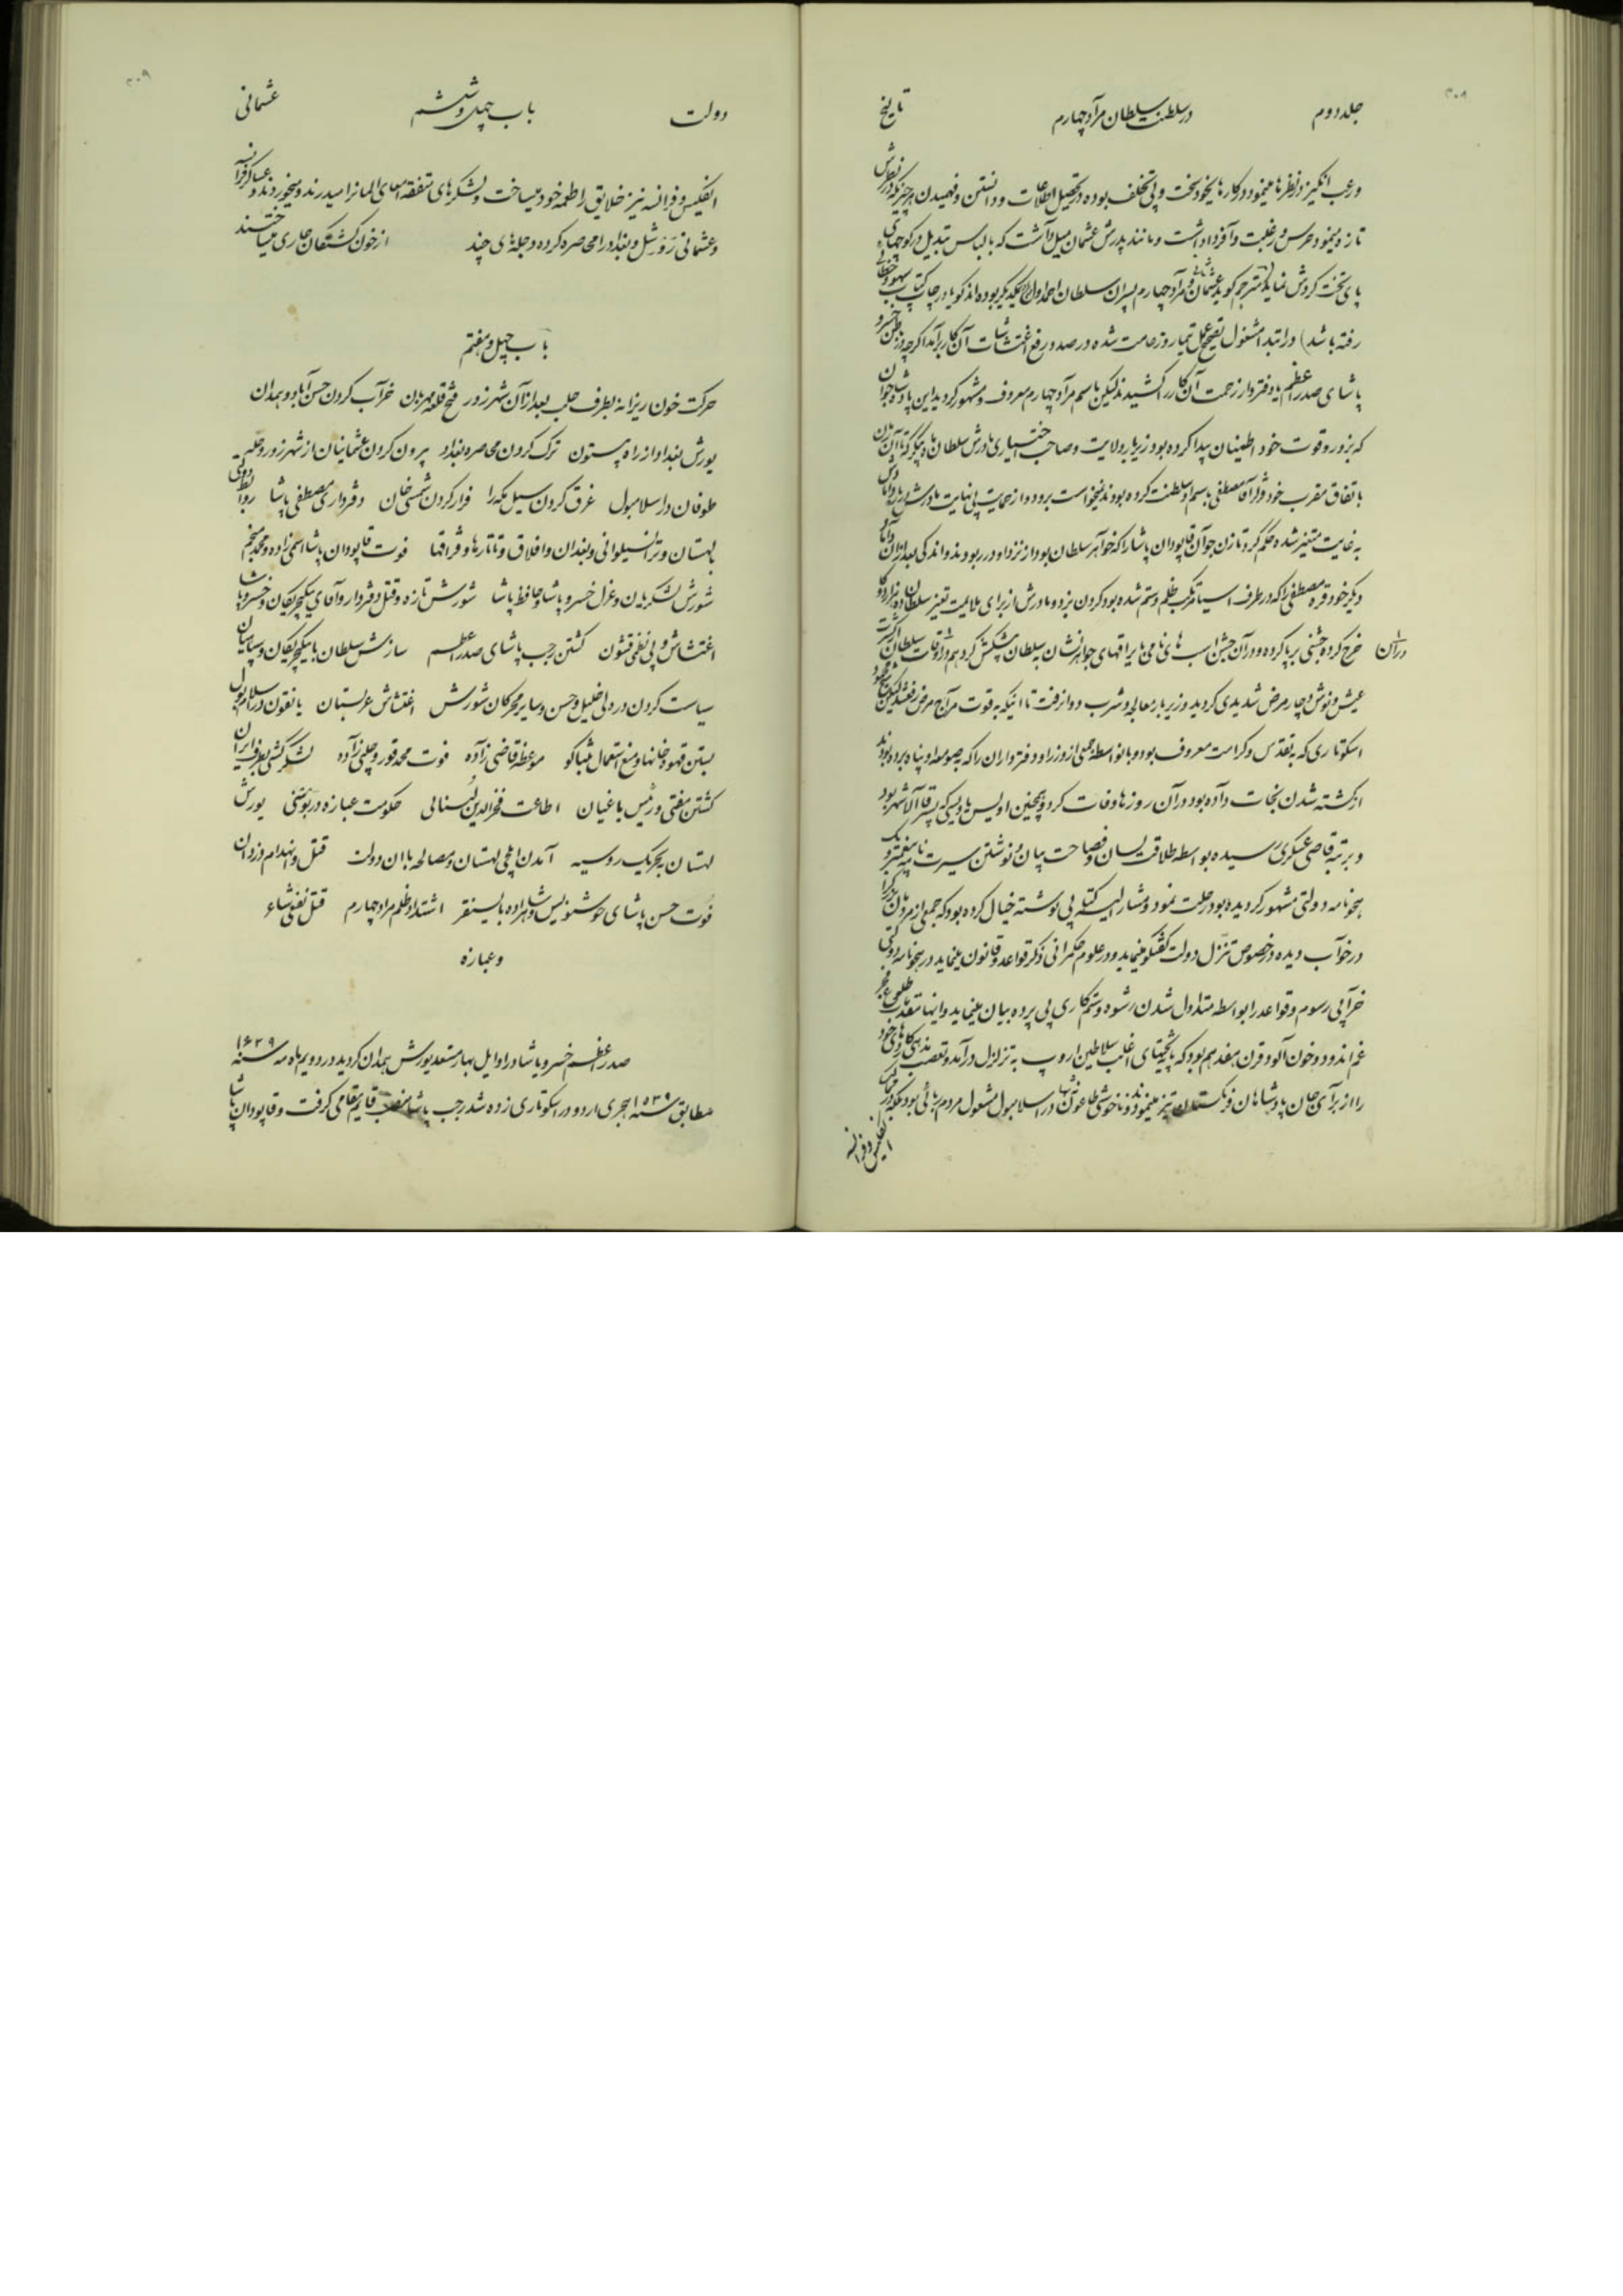 ۳۰۸
جلد دوم در سلطنت سلطان مراد چهارم تاریخ
و رعب انگیز در نظرها مینمود در کارها بیخود سخت و بی تخلف بوده در تحصیل اطلاعات و دانستن و فهمیدن هر چیزیکه در نظرش
تازه مینمود حرص و رغبت وافر داد داشت و مانند پدرش عثمان میل داشت که با لباس تبدیل در کوچهای
پای تخت گردش نماید (مترجم گوید عثمان ثانی و مراد چهارم پسران سلطان احمد اول یکدیگر بوده اند گویا در چاپ کتاب سهو و خطائی
رفته باشد) در ابتدا مشغول تصحیح عمل تیمار و زعامت شده در صدد رفع اغتشاشات آن کار برآمد اگرچه در باطن خسرو
پاشای صدر اعظم با دفتردار زحمت آن کار را کشیدند لیکن باسم مراد چهارم معروف و مشهور گردید این پادشاه جوان
که بزور و قوت خود اطمینان پیدا کرده بود زیر بار ولایت و صاحب اختیاری مادرش سلطان ماه پیکر که تا آن زمان
باتفاق مقرب خود قزلر آقا مصطفی باسم او سلطنت کرده بودند نمیخواست برود و از حمایت بی نهایت مادرش
به غایت متغیر شده حکم کرد تا زن جوان قاپودان پاشا را که خواهر سلطان بود از نزد او در ربودند و اندکی بعد از آن داماد
دیگر خود قره مصطفی را که در طرف آسیا مرتکب ظلم و ستم شده بود گردن بزد و مادرش از برای ملایمت تغیر سلطان ده هزار دوکا
در آن خرج کرده جشنی برپا کرده و در آن جشن اسب های نامی با یراقهای جواهرنشان به سلطان پیشکش کرد هم در اوقات سلطان از کثرت
عیش و نوش دچار مرض شدیدی گردید و زیر بار معالجه و شرب دوا نرفت تا اینکه به قوت مزاج مرض رفع شد لیکن شیخ محمود
اسکوتاری که به تقدس و کرامت معروف بود و بانواسطه جمعی از وزرا و دفترداران را که بصومعه او پناه برده بودند
از کشته شدن نجات داده بود در آن روزها وفات کرد و همچنین اویس یا ویسی که پسر قاآلاشهر بود
و برتبه قاضی عسکری رسیده بواسطه طلاقت لسان و فصاحت بیان و نوشتن سیرت نامه پیغمبر و یک
پنجونامه دولتی مشهور گردیده بود رحلت نمود و مشارالیه کتابی نوشته خیال کرده بود که جمعی از مردمان بزرگ را
در خواب دیده در خصوص تنزل دولت گفتگو مینماید و در علوم حکمرانی ذکر قواعد و قانون مینماید
خرابی رسوم و قواعد را بواسطه متداول شدن رشوه و ستمکاری بی پرده بیان مینماید و اینها مقدمات طلوع فجر
غم اندود و خون آلود قرن هفدهم بود که پای تختهای اغلب سلاطین اروپ به تزلزل درآمد و تعصب مذهبی کاردهای خود
را از برای جان پادشاهان فرنگستان تیز مینمود و ناخوشی طاعون در اسلامبول مشغول مردم ربائی بود
انگلیس و فرانسه
۳۰۹
دولت باب چهل و ششم عثمانی
انگلیس و فرانسه نیز خلایق را طعمه خود میساخت و لشکرهای متفقه اعدای المانرا میدریدند و میخوردند و عساکر فرانسه
و عثمانی رَوَشِل و بغداد را محاصره کرده دجلهٔ ای چند از خون کشتگان جاری میساختند
باب چهل و هفتم
حرکت خون ریزانه بطرف حلب بعد از آن شهر زور فتح قلعه مهربان خراب کردن حسن آباد و همدان
یورش بغداد از راه بیستون ترک کردن محاصره بغداد بیرون کردن عثمانیان از شهر زور و حله
طوفان در اسلامبول غرق کردن سیل مکه را فرار کردن شمسی خان دفترداری مصطفی پاشا روابط دولتی
لهستان و ترانسیلوانی و بغدان و افلاق و تاتارها و قزاقها فوت قاپودان پاشا اسمی زاده و محمد منجم
شورش لشکریان و عزل خسرو پاشا و حافظ پاشا شورش تازه و قتل دفتردار و آقای ینگچریکان و خسرو پاشا
اغتشاش و بی نظمی قشون کشتن رجب پاشای صدر اعظم سازش سلطان با ینگچریکان و سپاهیان
سیاست کردن دره لی خلیل و حسن و سایر محرکان شورش اغتشاش عربستان یانقون در اسلامبول
بستن قهوه خانها و منع استعمال تنباکو موعظه قاضی زاده فوت محمد قوروچلبی زاده لشگرکشی بطرف ایران
کشتن مفتی و رئیس یاغیان اطاعت فخرالدین لبنانی حکومت عبازه در بوسنی یورش
لهستان بتحریک روسیه آمدن ایلچی لهستان و مصالحه با آن دولت قتل و انهدام دزدان
فوت حسن پاشای خوشنویس و شاهزاده بایسنقر اشتداد ظلم مراد چهارم قتل نفعی شاعر
و عبازه
صدر اعظم خسرو پاشا در اوایل بهار مستعد یورش همدان گردید در دویم ماه مه سنه ۱۶۲۹
مطابق سنه ۱۰۳۹ هجری اردو در اسکوتاری زده شد رجب پاشا منصب قایم مقامی گرفت و قاپودان پاشا